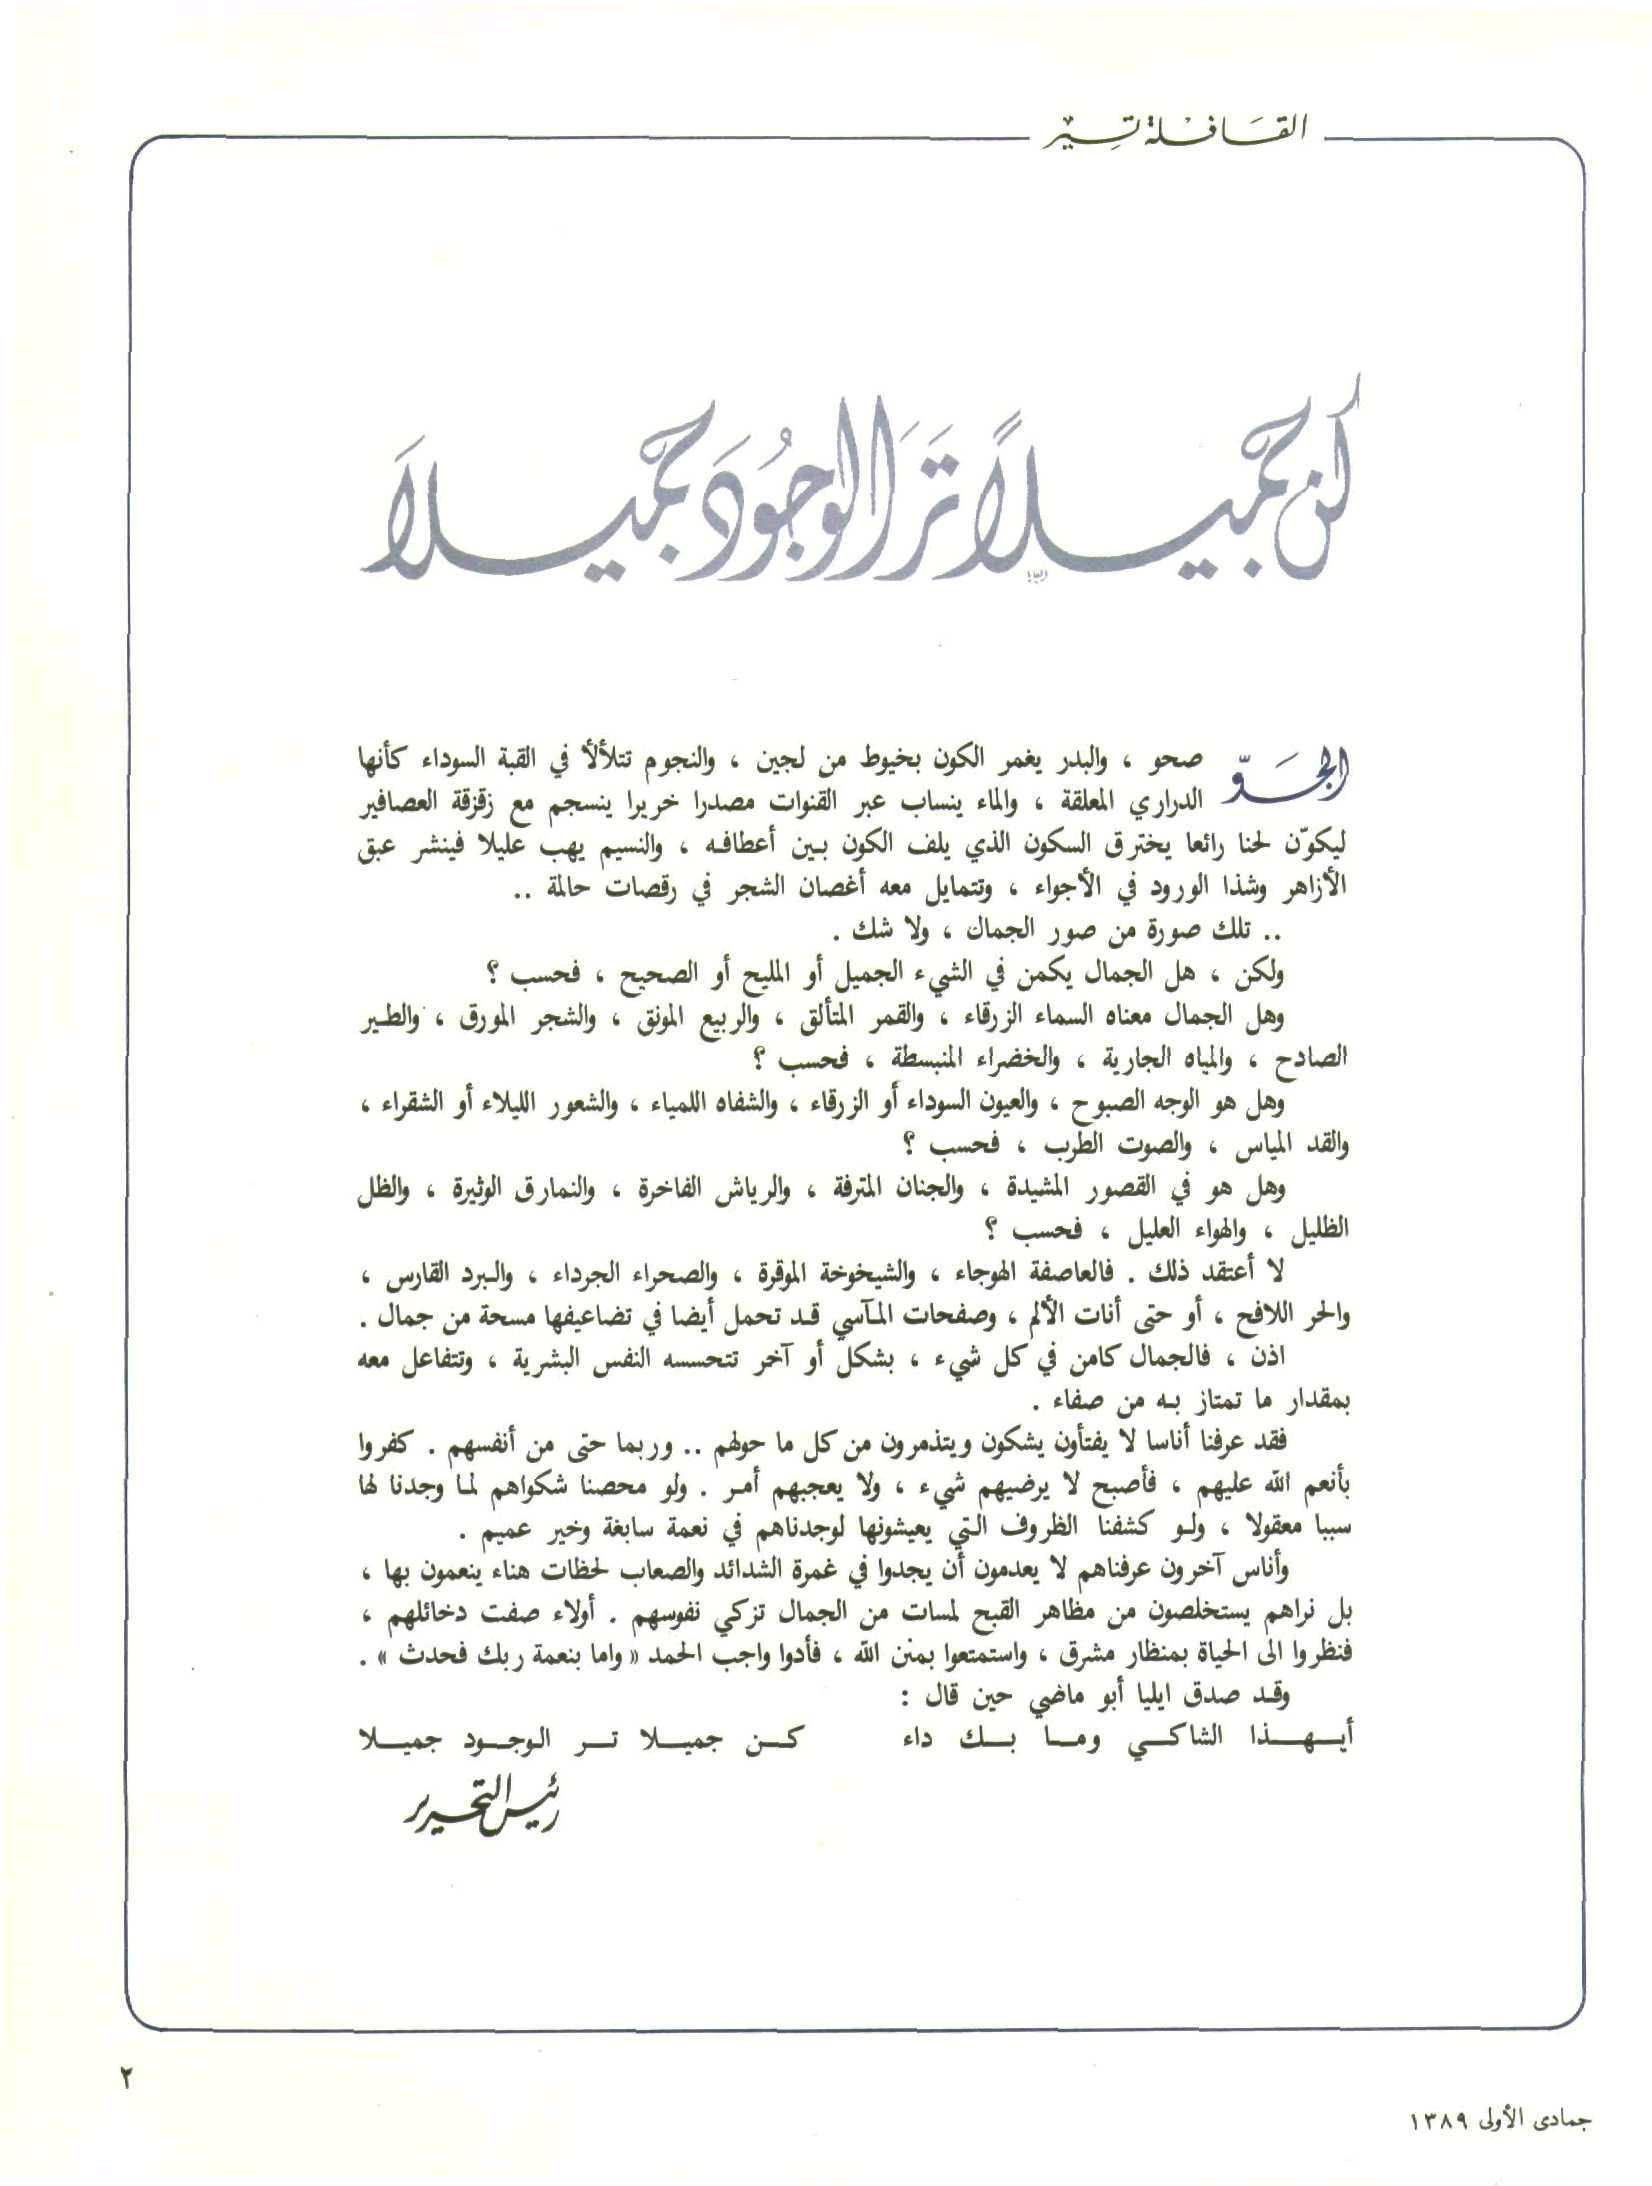 القافلة تسير
كُن جميلاً تَرَ الوجُودَ جميلاَ
الجَوّ صحو ، والبدر يغمر الكون بخيوط من لجين ، والنجوم تتلألأ في القبة السوداء كأنها
الدراري المعلقة ، والماء ينساب عبر القنوات مصدرا خريرا ينسجم مع زقزقة العصافير
ليكوّن لحنا رائعا يخترق السكون الذي يلف الكون بين أعطافه ، والنسيم يهب عليلا فينشر عبق
الأزاهر وشذا الورود في الأجواء ، وتتمايل معه أغصان الشجر في رقصات حالمة ..
.. تلك صورة من صور الجمال ، ولا شك .
ولكن ، هل الجمال يكمن في الشيء الجميل أو المليح أو الصحيح ، فحسب ؟
وهل الجمال معناه السماء الزرقاء ، والقمر المتألق ، والربيع المونق ، والشجر المورق ، والطير
الصادح ، والمياه الجارية ، والخضراء المنبسطة ، فحسب ؟
وهل هو الوجه الصبوح ، والعيون السوداء أو الزرقاء ، والشفاه اللمياء ، والشعور الليلاء أو الشقراء ،
والقد المياس ، والصوت الطرب ، فحسب ؟
وهل هو في القصور المشيدة ، والجنان المترفة ، والرياش الفاخرة ، والنمارق الوثيرة ، والظل
الظليل ، والهواء العليل ، فحسب ؟
لا أعتقد ذلك . فالعاصفة الهوجاء ، والشيخوخة الموقرة ، والصحراء الجرداء ، والبرد القارس ،
والحر اللافح ، أو حتى أنات الألم ، وصفحات المآسي قد تحمل أيضا في تضاعيفها مسحة من جمال .
اذن ، فالجمال كامن في كل شيء ، بشكل أو آخر تتحسسه النفس البشرية ، وتتفاعل معه
بمقدار ما تمتاز به من صفاء .
فقد عرفنا أناسا لا يفتأون يشكون ويتذمرون من كل ما حولهم .. وربما حتى من أنفسهم . كفروا
بأنعم الله عليهم ، فأصبح لا يرضيهم شيء ، ولا يعجبهم أمر . ولو محصنا شكواهم لما وجدنا لها
سببا معقولا ، ولو كشفنا الظروف التي يعيشونها لوجدناهم في نعمة سابغة وخير عميم .
وأناس آخرون عرفناهم لا يعدمون أن يجدوا في غمرة الشدائد والصعاب لحظات هناء ينعمون بها ،
بل نراهم يستخلصون من مظاهر القبح لمسات من الجمال تزكي نفوسهم . أولاء صفت دخائلهم ،
فنظروا الى الحياة بمنظار مشرق ، واستمتعوا بمنن الله ، فأدوا واجب الحمد « واما بنعمة ربك فحدث » .
وقد صدق ايليا أبو ماضي حين قال :
أيهذا الشاكي وما بك داء كن جميلا تر الوجود جميلا
رئيس التحرير
٢
جمادى الأولى ١٣٨٩